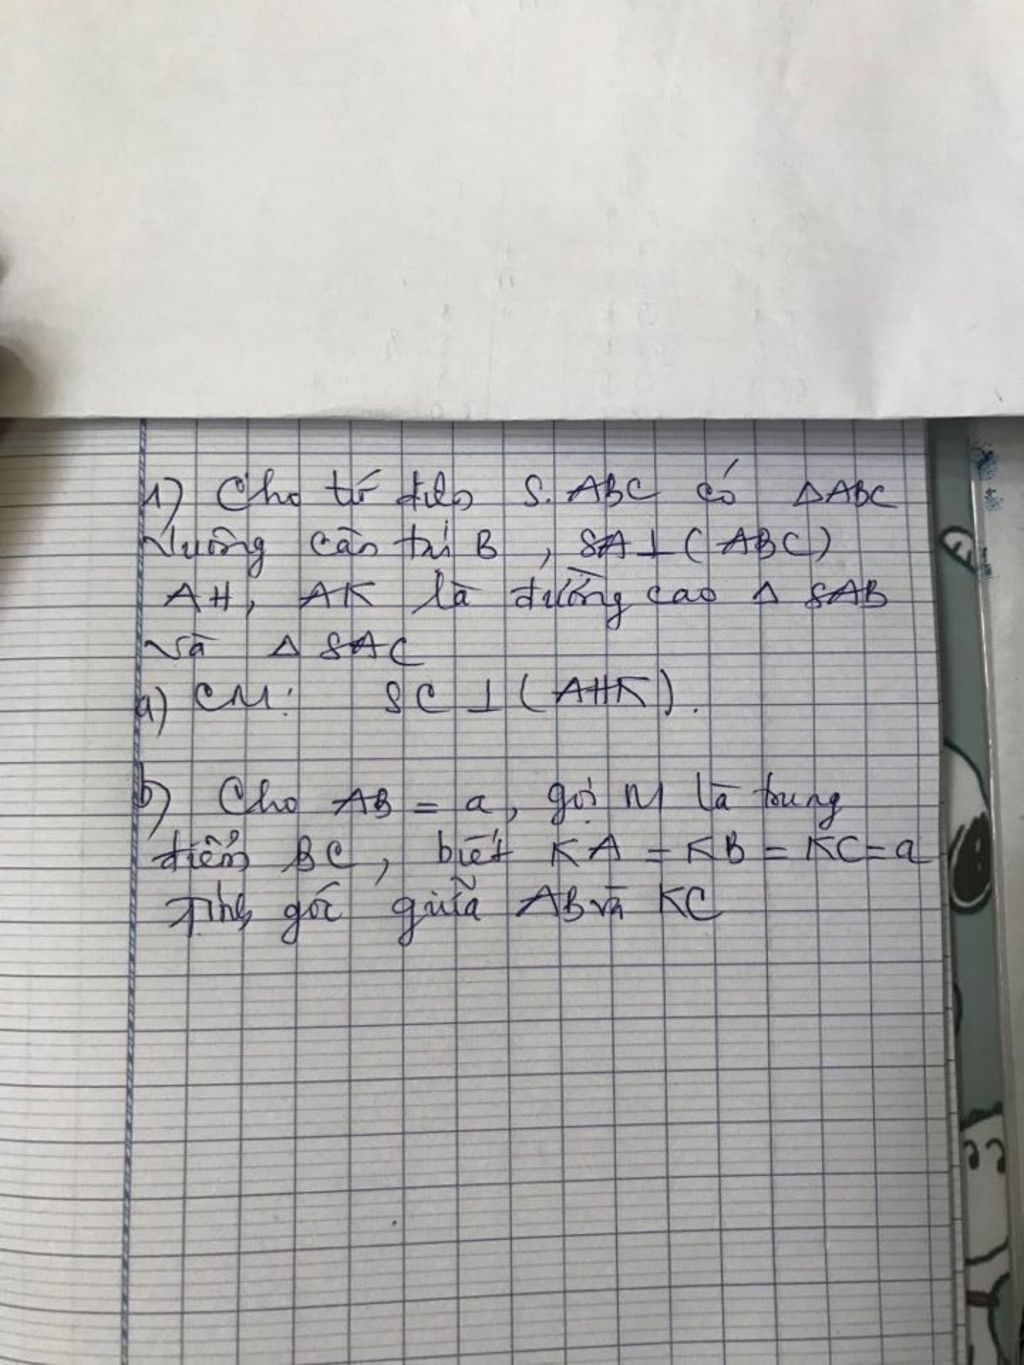 1) Cho tứ diện S.ABC có ΔABC
vuông cân tại B, SA⊥(ABC)
AH, AK là đường cao Δ SAB
và Δ SAC
a) CM: SC ⊥ (AHK).
b) Cho AB = a, gọi M là trung
điểm BC, biết KA = KB = KC = a
Tính góc giữa AB và KC